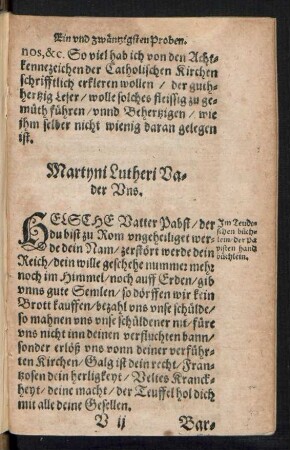 Ein vnd zwäntzigsten Proben.
nos, &c. So viel hab ich von den Acht-
kennezeichen der Catholischen Kirchen
schrifftlich erkleren wollen / der guth-
hertzig Leser / wolle solches fleissig zu ge-
müth führen / vnnd Behertzigen / wie
jhm selber nicht wienig daran gelegen
ist.
Martyni Lutheri Va-
der Vns.
HELSCHE Vatter Pabst / der
du bist zu Rom vngeheiliget wer-
de dein Nam / zerstört werde dein
Reich / dein wille geschehe nummer mehr
noch im Himmel / noch auff Erden / gib
vnns gute Semlen / so dörffen wir kein
Brott kauffen / bezahl vns vnse schülde /
so mahnen vns vnse schüldener nit / füre
vns nicht inn deinen verfluchten bann /
sonder erlöß vns vonn deiner verführ-
ten Kirchen / Galg ist dein recht / Fran-
tzosen dein herligkeyt / Veltes Kranck-
heyt / deine macht / der Teuffel hol dich
mit alle deine Gesellen.
Im Teude-
schen büch-
lein / der Pa
pisten hand
büchlein.
V ij
Bar-